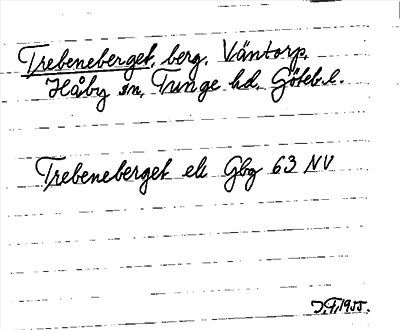 Trebeneberget, berg, Väntorp,
Håby sn, Tunge hd, Göteb.l.
Trebeneberget ek Gbg 63 NV
J.F. 1955.